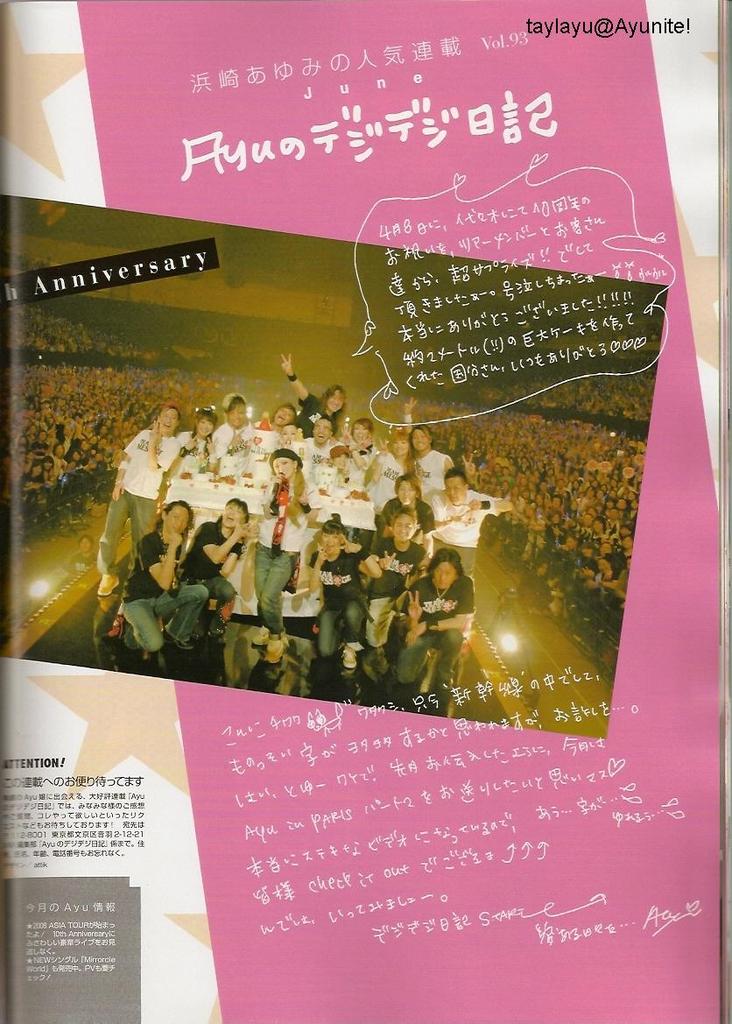 taylayu@Ayunite!
浜崎あゆみの人気連載 Vol.93
June
Ayuのデジデジ日記
4月8日に、代々木にて10周年の
お祝いを、ツアーメンバーとお客さん
達から、超サプライズ!!でして
頂きましたぁー。号泣しちまったぁー
本当にありがとうございました!!!!!!
約2メートル(!!)の巨大ケーキを作って
くれた国分さん、いつもありがとう♡♡♡
h Anniversary
こんにチワワ ワタクシ、只今“新幹線”の中でして、
ものっそい字がヨタヨタするかと思われますが、お許しを…。
はい、とゆーワケで、先月お伝えしたように、今月は
Ayu in PARIS パート2をお送りしたいと思いマス♡
本当にステキなビデオになっているので、 あぅ…字が…
皆様 check it out でござる↑↑↑ ゆれるぅ…
んでは、いってみましょー。
デジデジ日記 START
Ayu♡
ATTENTION!
この連載へのお便り待ってます
Ayu嬢に出会える、大好評連載「Ayu
デジデジ日記」では、みなみな様のご感想
、コレやって欲しいといったリク
ストなどもお待ちしております! 宛先は
12-8001 東京都文京区音羽2-12-21
編集部「Ayuのデジデジ日記」係まで。住
氏名、年齢、電話番号もお忘れなく。
attik
今月のAyu情報
★2008 ASIA TOURが始まっ
たよ! 10th Anniversaryに
ふさわしい豪華ライブをお見
逃しなく。
★NEWシングル「Mirrorcle
World」も発売中。PVも要チ
ェック!